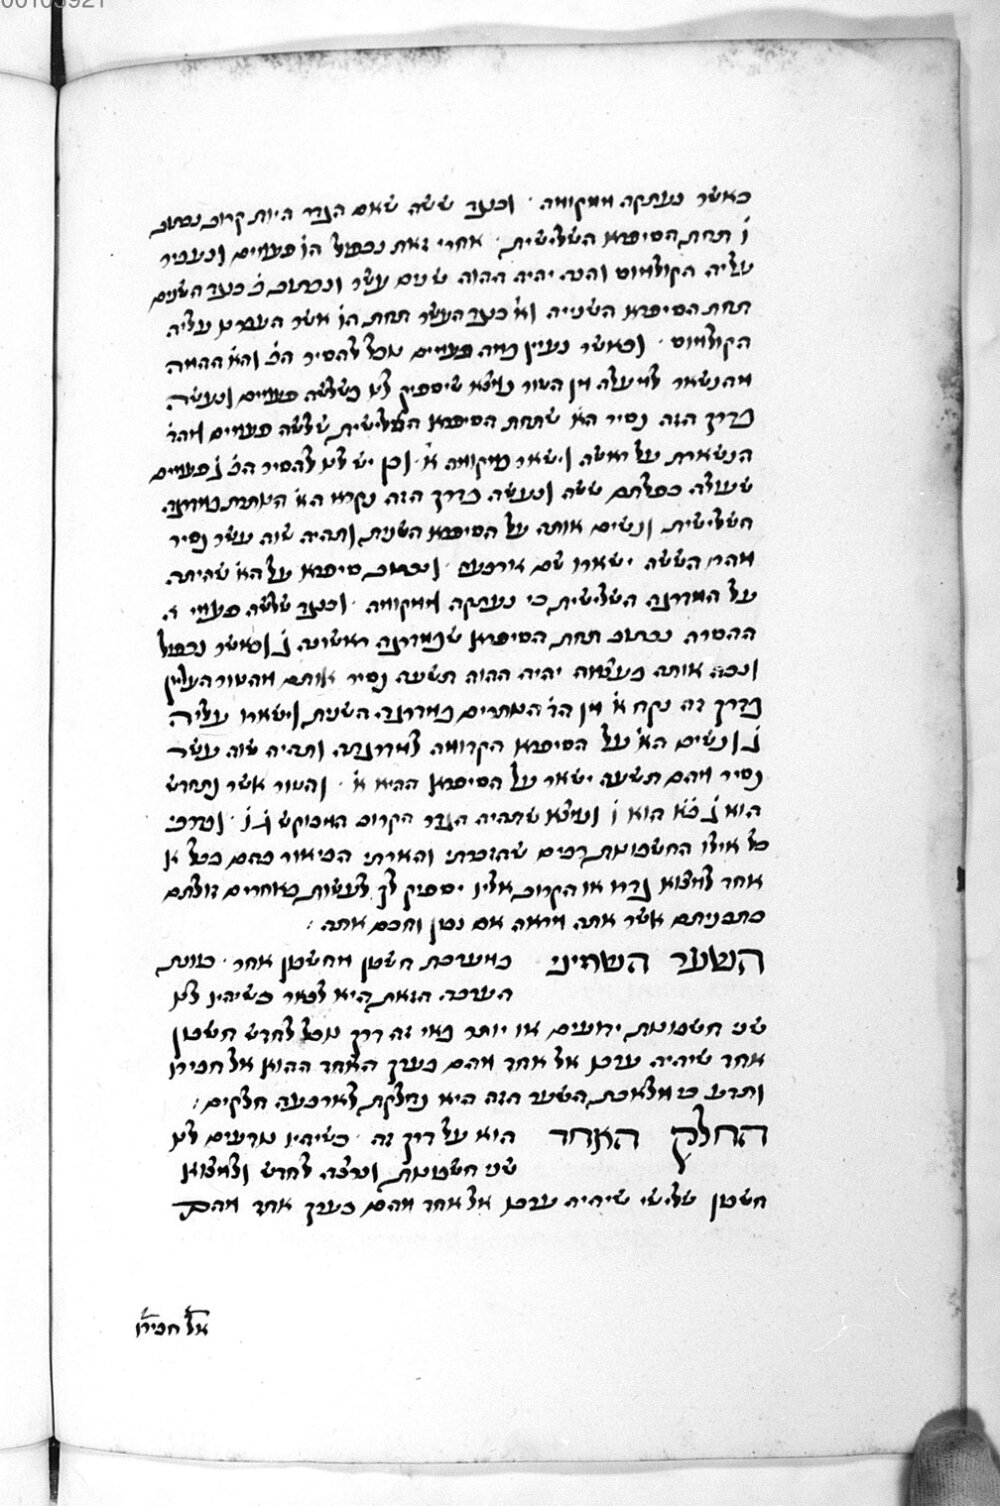 כאשר נעתקה ממקומה · וכנגד ששה שאם הגדר היות קרוב נכתוב
ו תחת הסיפרא השלישית · אחרי זאת נכפול הו פעמים ונעביר
עליה הקולמוס והנה יהיה ההוה שנים עשר ונכתוב ב כנגד השנים
תחת הסיפרא השנייה וא כנגד העשר תחת הו אשר העברנו עליה
הקולמוס · וכאשר נעיין כמה פעמים נוכל להסיר הב והא ההמה
מהנשאר למעלה מן הטור נמצא שיספיק לנו בשלשה פעמים ונעשה
בדרך הזה נסיר הא שתחת הסיפרא השלישית שלשה פעמים מהד
הנשארת על ראשה וישאר במקומה א · וכן יש לנו להסיר הב ג פעמים
שעולה כפלתם ששה ונעשה בדרך הזה נקרא הא הנותרת במדרגה
השלישית ונשים אותה על הסיפרא השנית ותהיה שוה עשר נסיר
מהם הששה ישארו שם ארבעה · ונכתוב סיפרא על הא שהיתה
על המדרגה השלישית כי נעתקה ממקומה · וכנגד שלשה פעמי
ההסרה נכתוב תחת הסיפרא שבמדרגה ראשונה ג וכאשר נכפול
ונכה אותה בעצמה יהיה ההוה תשעה נסיר אותם מהטור העליון
בדרך זה נקח א מן הד הנותרים במדרגה השנית וישארו עליה
ג ונשים הא על הסיפרא הקדומה למדרגתה ותהיה שוה עשר
נסיר מהם תשעה ישאר על הסיפרא ההיא א · והטור אשר נתחדש
הוא ג כא הוא ו ונמצא שתהיה הגדר הקרוב המבוקש ג ו · ודרכי
כל אילו החשבונות רבים שהזכרתי והארתי הביאור בהם בכל א
אחד למצוא גדרו או הקרוב אליו יספיק לך לעשות באחרים זולתם
כתבניתם אשר אתה מראה אם נבון וחכם אתה :
השער הששיני במערכת חשבון מחשבון אחר · כוונת
הערכה הזאת היא לבאר כשיהיו לנו
שני חשבונות ידועים או יותר באי זה דרך נוכל לחדש חשבון
אחד שיהיה ערכו אל אחד מהם כערך האחד ההוא אל חבירו
ותדע כי מלאכת השער הזה היא נחלקת לארבעה חלקים :
החלק האחד הוא על דרך זה · כשיהיו נודעים לנו
שני חשבונות ונרצה לחדש ולמצוא
חשבון שלישי שיהיה ערכו אל אחד מהם כערך אחד מהם
אל חבירו